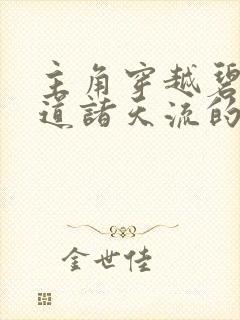 主角穿越碧
道诸天流的
金世佳